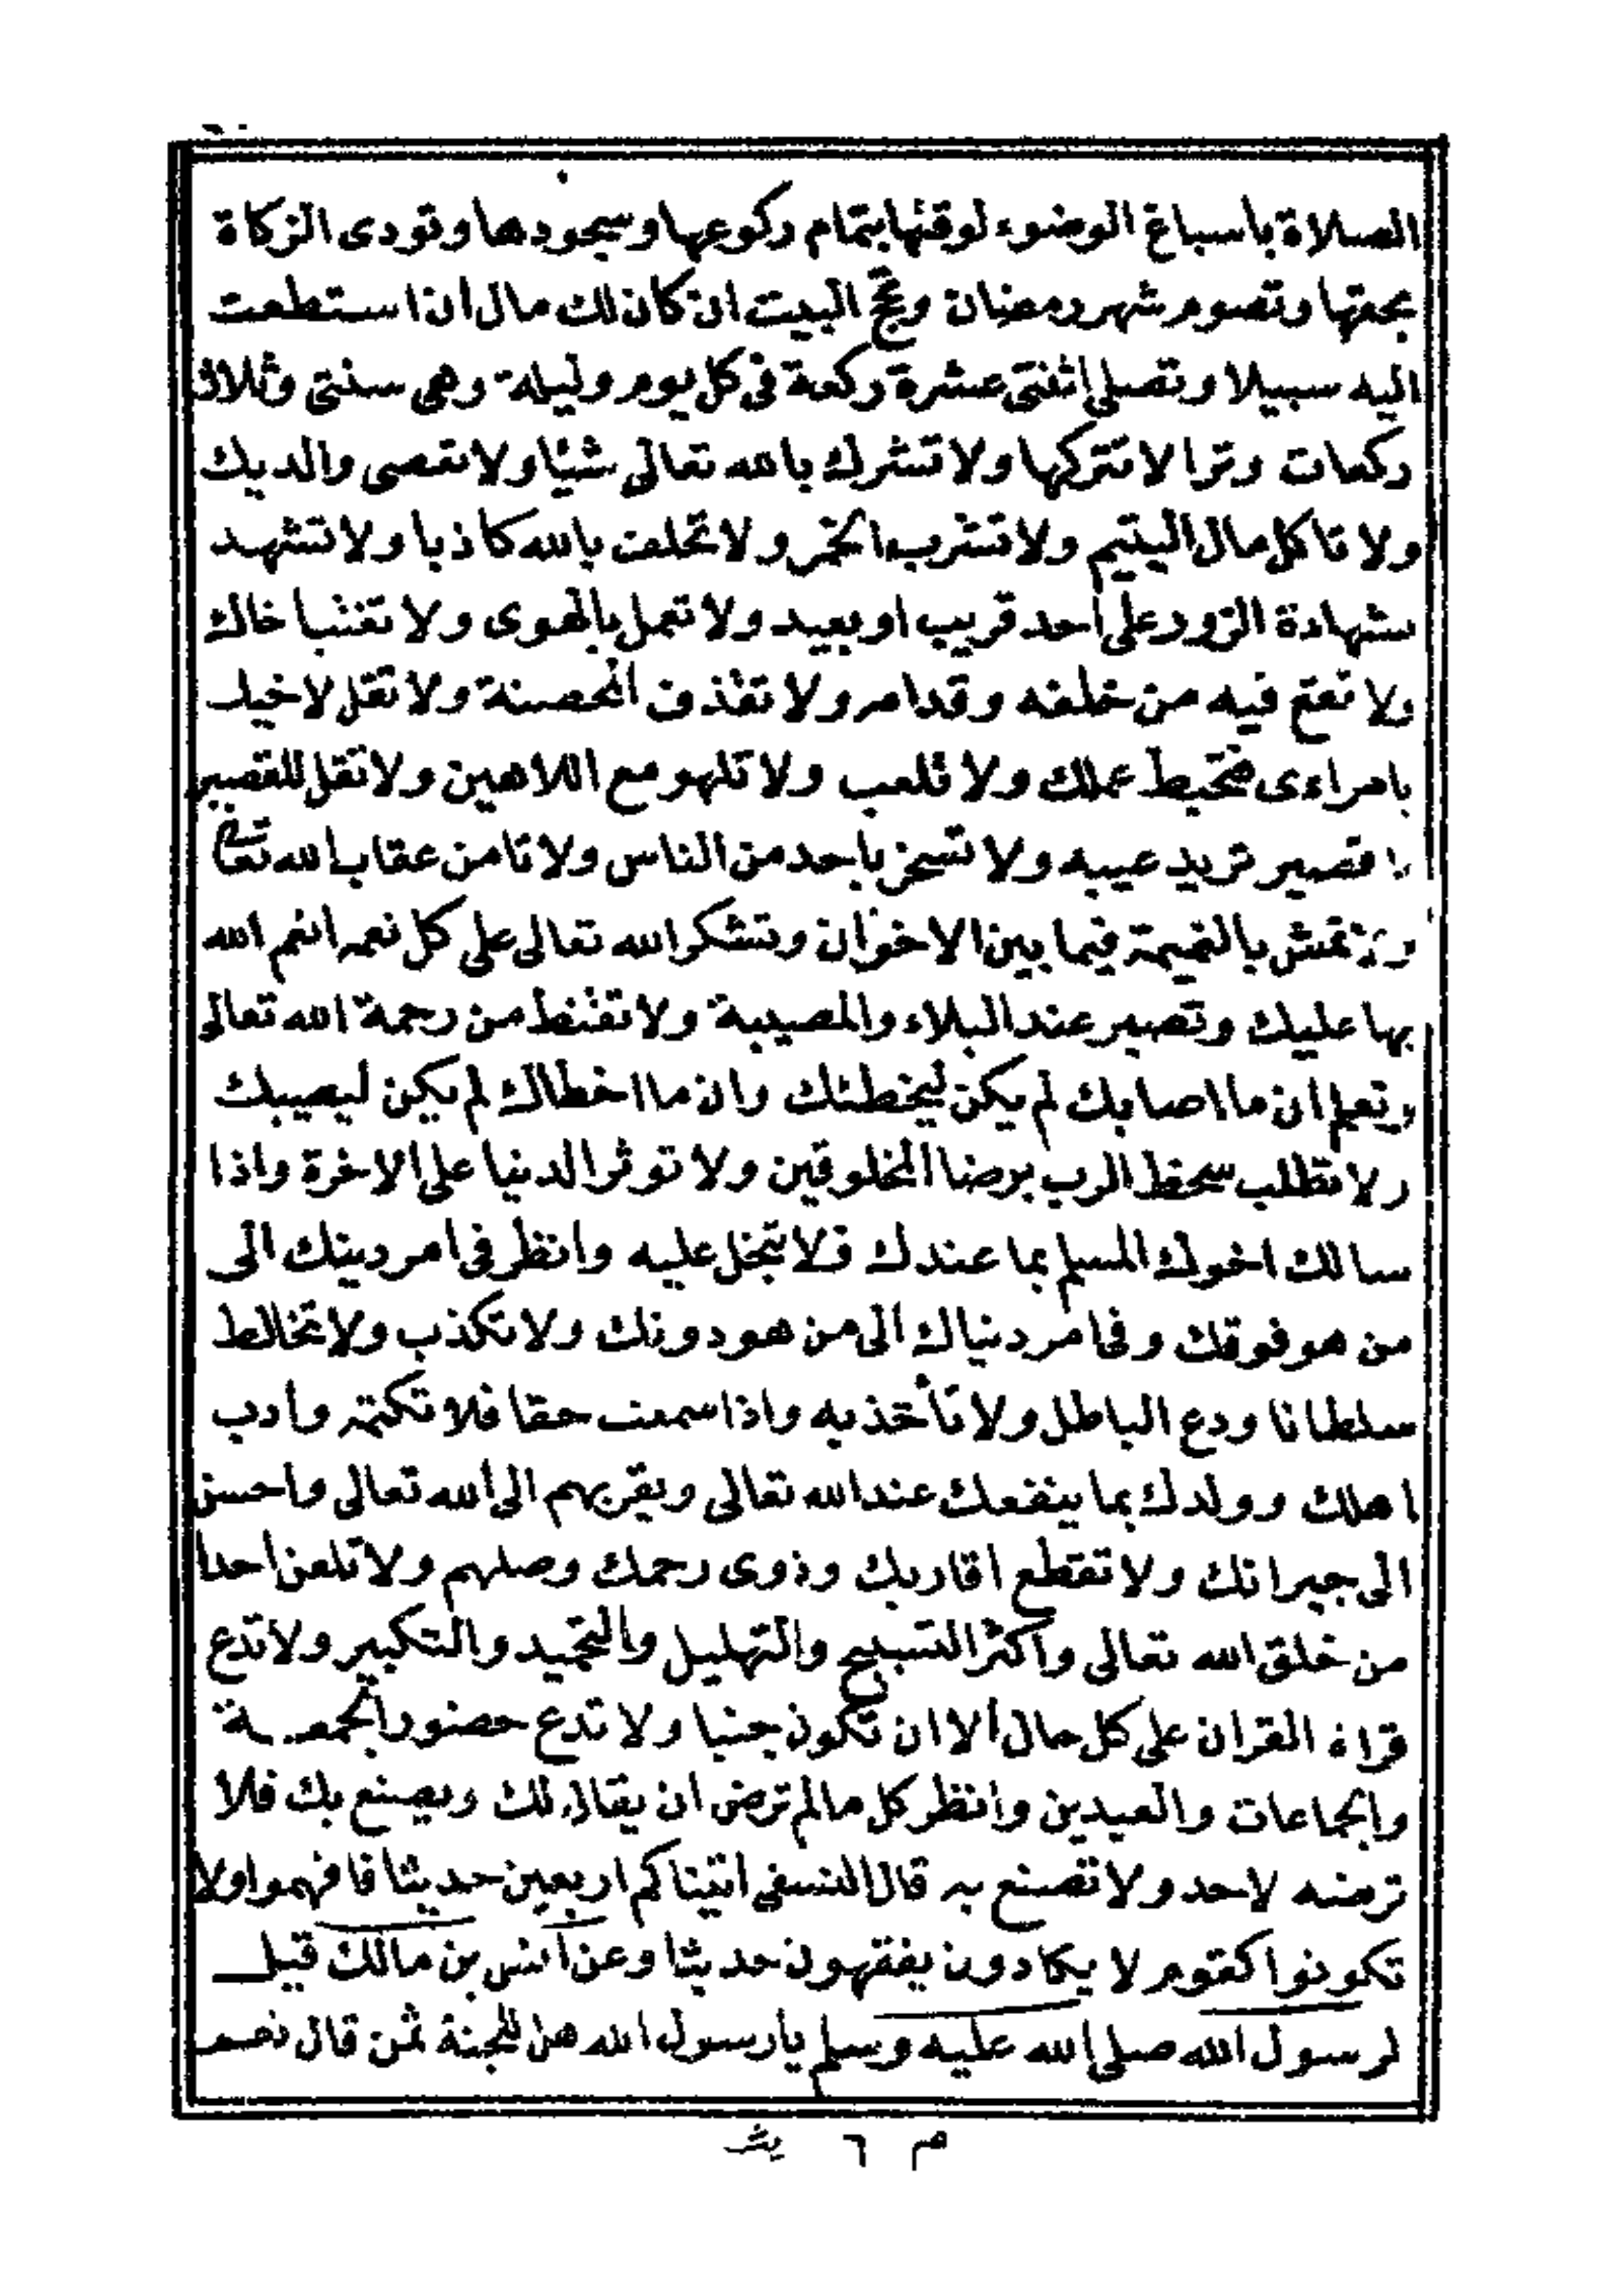 الصلاة باسباغ الوضوء لوقتها بتمام ركوعها وسجودها وتودى الزكاة
بحقها وتصوم شهر رمضان وتحج البيت ان كان لك مال ان استطعت
اليه سبيلا وتصلى اثنتى عشرة ركعة فى كل يوم وليلة وهى سنتى وثلاث
ركعات وترا لا تتركها ولا تشرك بالله تعالى شيئا ولا تعصى والديك
ولا تاكل مال اليتيم ولا تشرب الخمر ولا تحلف بالله كاذبا ولا تشهد
شهادة الزور على أحد قريب او بعيد ولا تعمل بالهوى ولا تغتب اخاك
ولا تقع فيه من خلفه وقدامه ولا تقذف المحصنة ولا تقل لاخيك
يامراءى فتحيط عملك ولا تلعب ولا تلهو مع اللاهين ولا تقل للقصير
يا قصير تريد عيبه ولا تسخر باحد من الناس ولا تامن عقاب الله تعالى
ولا تمش بالنميمة فيما بين الاخوان وتشكر الله تعالى على كل نعمه انعم الله
بها عليك وتصبر عند البلاء والمصيبة ولا تقنط من رحمة الله تعالى
وتعلم ان ما اصابك لم يكن ليخطئك وان ما اخطاك لم يكن ليصيبك
ولا تطلب سخط الرب برضا المخلوقين ولا توثر الدنيا على الاخرة واذا
سالك اخوك المسلم بما عندك فلا تبخل عليه وانظر فى امر دينك الى
من هو فوقك وفى امر دنياك الى من هو دونك ولا تكذب ولا تخالط
سلطانا ودع الباطل ولا تأخذ به واذا سمعت حقا فلا تكتمه وأدب
اهلك وولدك بما ينفعك عند الله تعالى ويقربهم الى الله تعالى وأحسن
الى جيرانك ولا تقطع اقاربك وذوى رحمك وصلهم ولا تلعن احدا
من خلق الله تعالى وأكثر التسبيح والتهليل والتحميد والتكبير ولا تدع
قراة القران على كل حال ألا ان تكون جنبا ولا تدع حضور الجمعة
والجماعات والعيدين وانظر كل ما لم ترض ان يقال لك ويصنع بك فلا
ترضه لاحد ولا تصنع به قال النسفى اتيناكم اربعين حديثا فافهموا ولا
تكونوا كقوم لا يكادون يفقهون حديثا وعن أنس بن مالك قيل
لرسول الله صلى الله عليه وسلم يا رسول الله هل للجنة ثمن قال نعم
م ٦